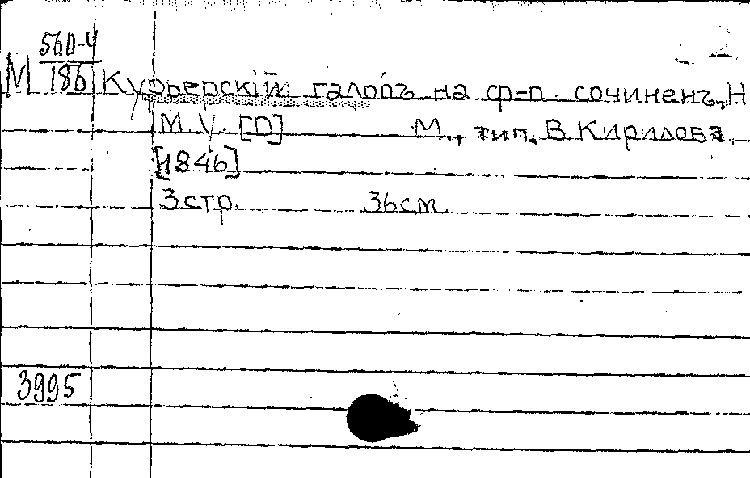 М 560-4
186
Курьерскій галопъ на ф-п. сочиненъ, Н
М.У. [D] М., тип. В. Кирилова.
[1846]
3 стр. 36 см.
3995